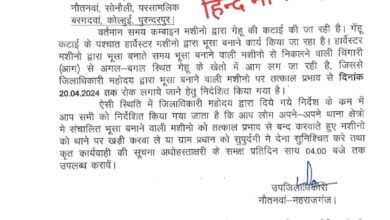 नौतनवां, सोनौली, परसामलिक
बरगदवां, कोल्हुई, पुरन्दरपुर।
हिन्द
वर्तमान समय कम्बाइन मशीनो द्वारा गेहू की कटाई की जा रही है। गेंहू
कटाई के पश्चात हार्वेस्टर मशीनो द्वारा भूसा बनाने कार्य किया जा रहा है। हार्वेस्टर
मशीनो द्वारा भूसा बनाते समय भूसा बनाने वाली मशीनो से निकलने वाली चिंगारी
(आग) से अगल-बगल स्थित गेहू के खेतो में आग लग जा रही है, जिससे
जिलाधिकारी महोदय द्वारा भूसा बनाने वाली मशीनो पर तत्काल प्रभाव से दिनांक
20.04.2024 तक रोक लगाये जाने हेतु निर्देशित किया गया है।
ऐसी स्थिति में जिलाधिकारी महोदय द्वारा दिये गये निर्देश के कम में
आप सभी को निर्देशित किया गया जाता है कि आप लोग अपने-अपने थाना क्षेत्रो
मे संचालित भूसा बनाने वाली मशीनो को तत्काल प्रभाव से बन्द करवाते हुए मशीनो
को थाने पर खड़ी करवा ले या ग्राम प्रधान को सुपुर्दनी मे देना सुनिश्चित करे तथा
कृत कार्यवाही की सूचना अधोहस्ताक्षरी के समक्ष प्रतिदिन साय 04.00 बजे तक
उपलब्ध करावें।
उपजिलाधिकारी
नौतनवां-महराजगंज।